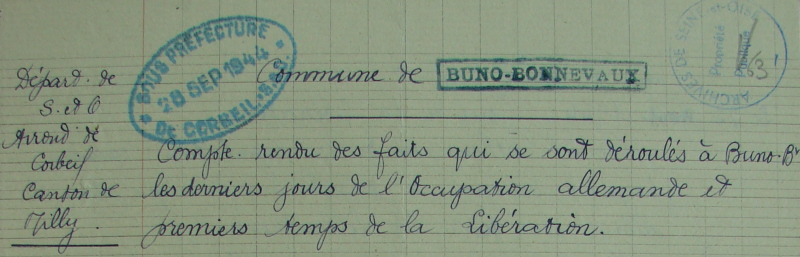 Départ. de
S. et O
Arrond. de
Corbeil
Canton de
Milly.
SOUS PRÉFECTURE
28 SEP 1944
DE CORBEIL
Commune de BUNO-BONNEVAUX
ARCHIVES DE SEINE-et-OISE
Propriété
Publique
Compte-rendu des faits qui se sont déroulés à Buno-Bx
les derniers jours de l'Occupation allemande et
premiers temps de la Libération.